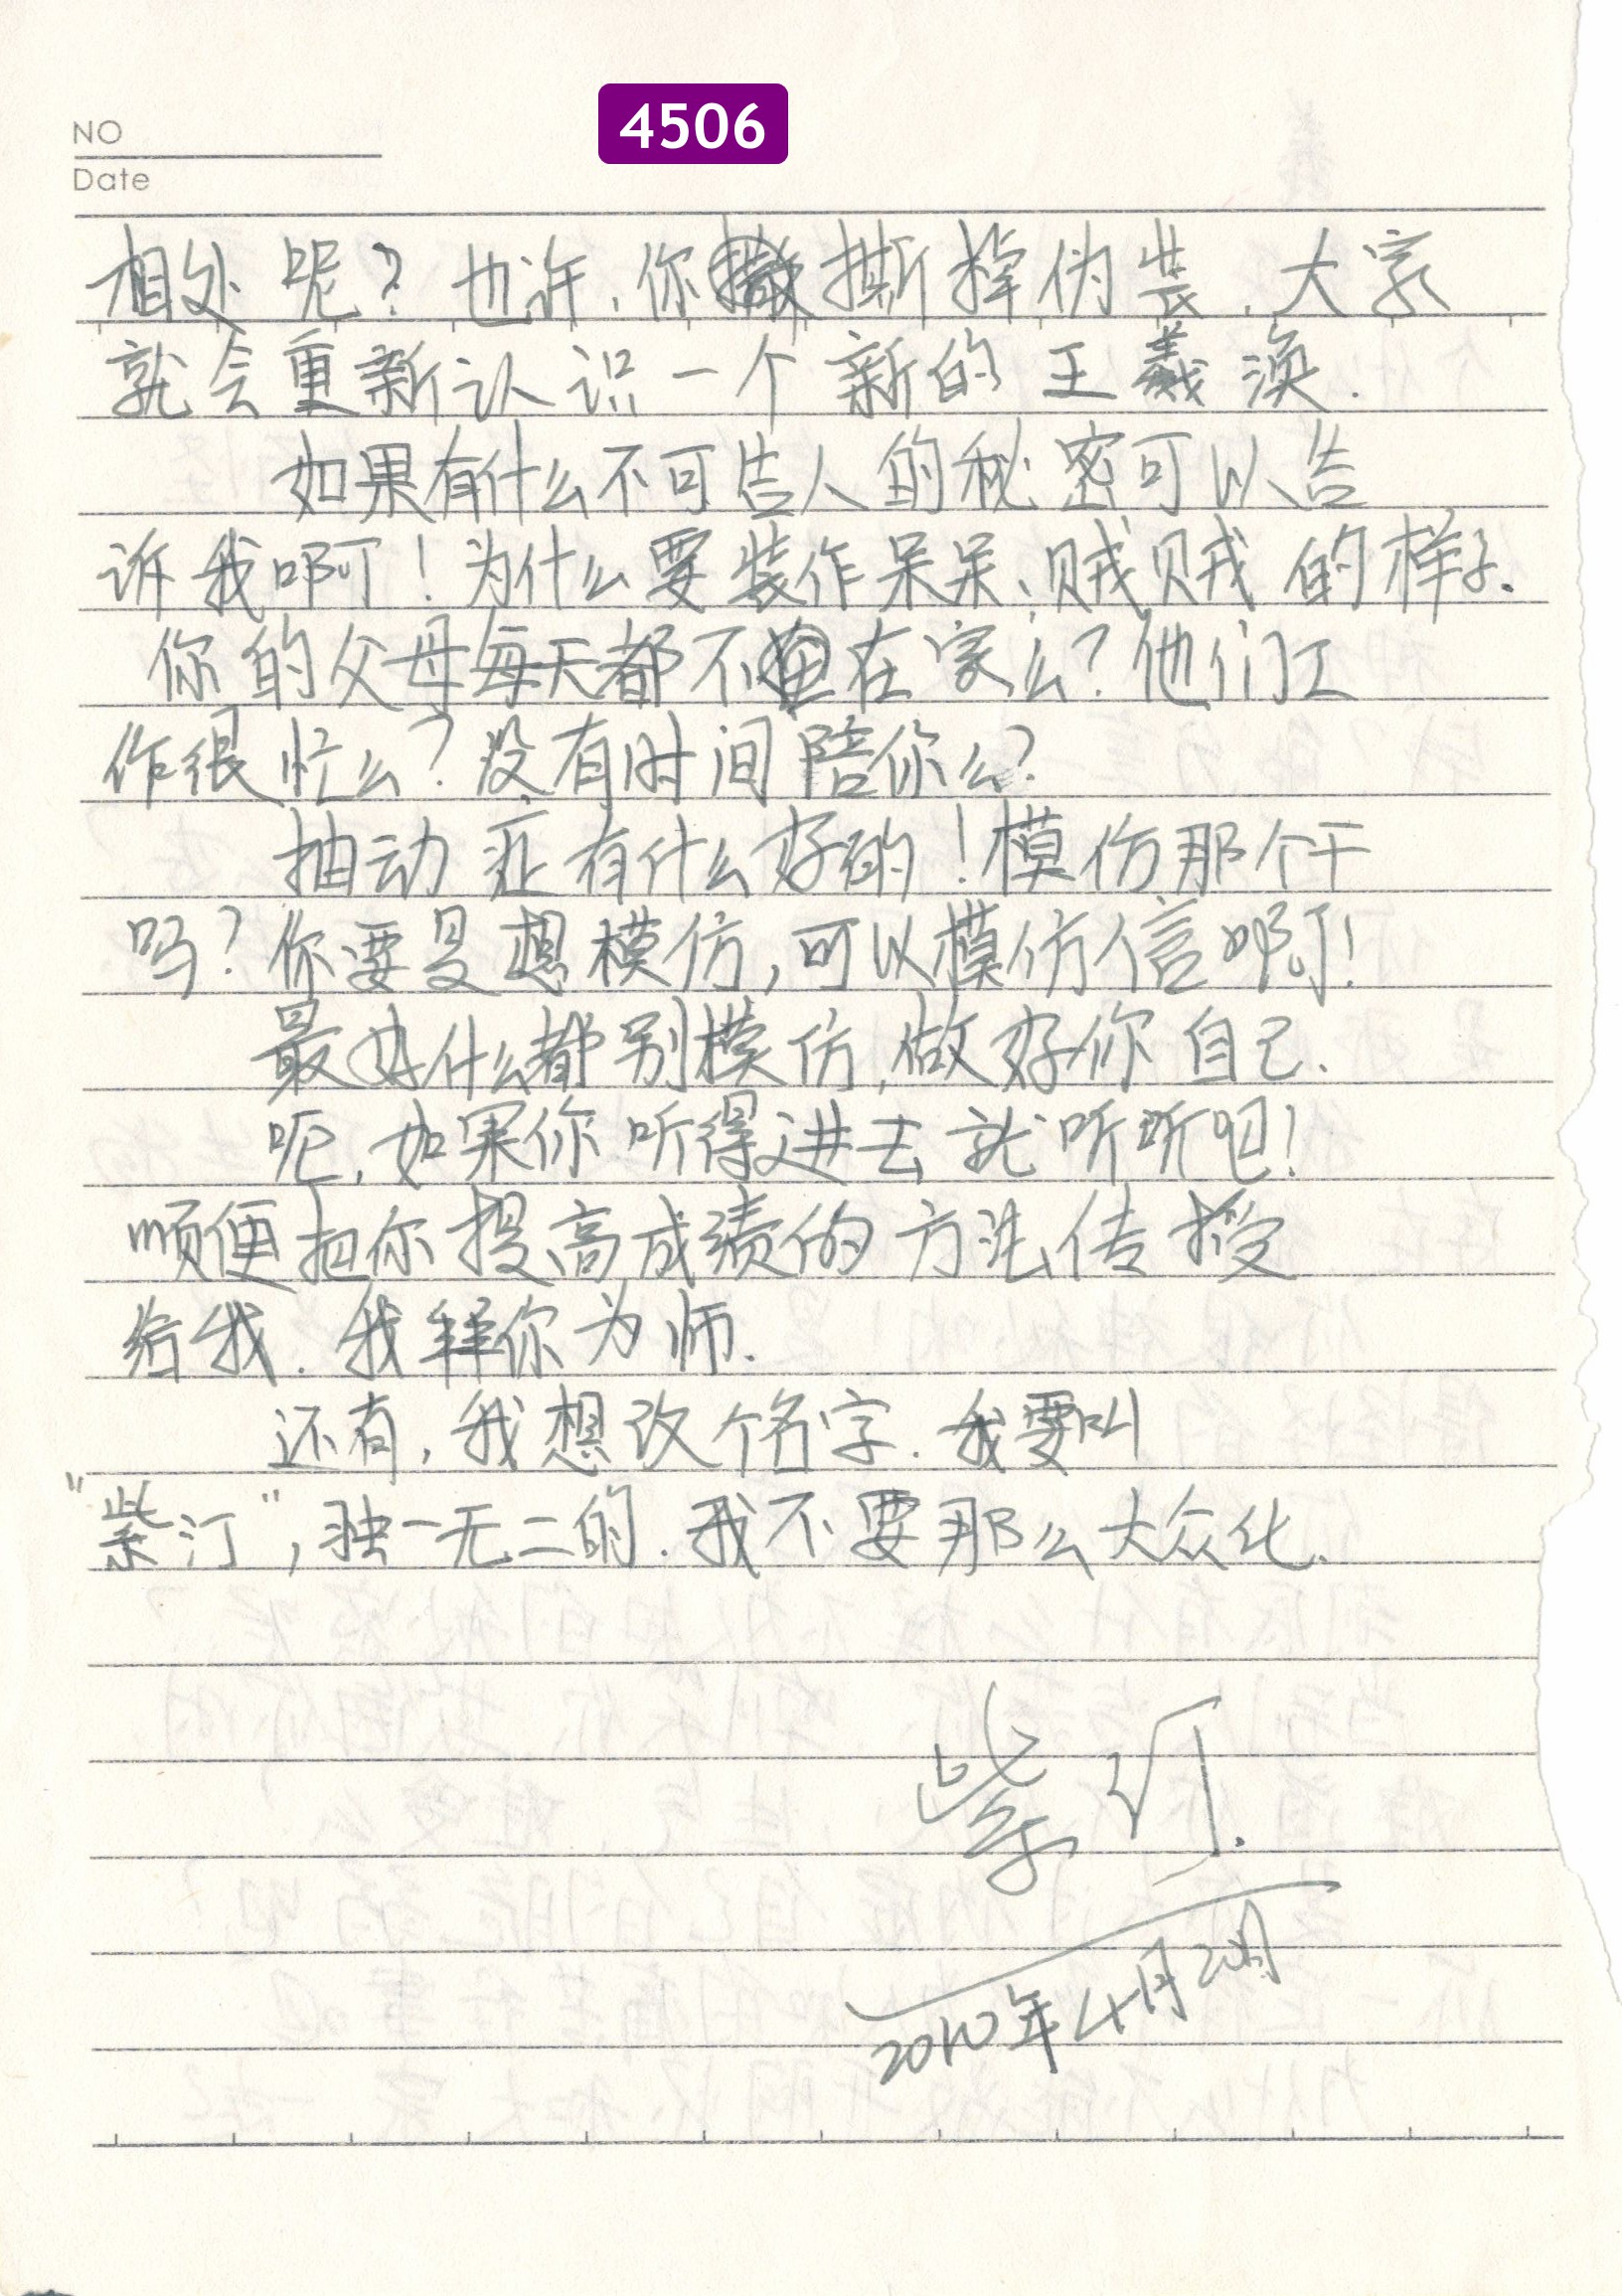 4506
NO
Date
相处呢？也许，你撕掉伪装，大家
就会重新认识一个新的王羲涣.
如果有什么不可告人的秘密可以告
诉我啊！为什么要装作呆呆、贼贼的样子.
你的父母每天都不在家么？他们工
作很忙么？没有时间陪你么？
抽动症有什么好的！模仿那个干
吗？你要是想模仿，可以模仿信啊！
最好什么都别模仿，做好你自己.
呃，如果你听得进去就听听吧！
顺便把你提高成绩的方法传授
给我.我拜你为师.
还有，我想改个名字.我要叫
“紫汀”，独一无二的.我不要那么大众化.
紫汀.
2010年4月20日